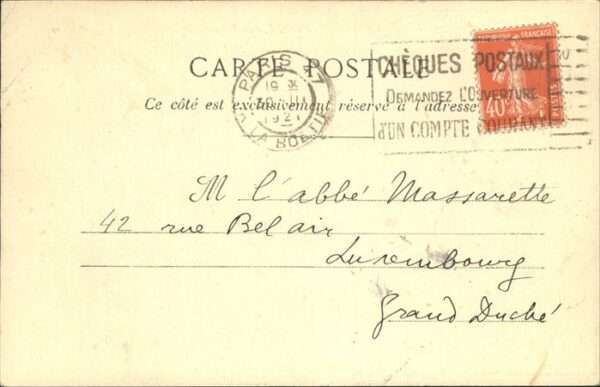 CARTE POSTALE
Ce côté est exclusivement réservé à l'adresse
PARIS 47
1921
R. LA BOETIE
CHÈQUES POSTAUX
DEMANDEZ L'OUVERTURE
D'UN COMPTE COURANT
40
M l'abbé Massarette
42 rue Bel air
Luxembourg
Grand Duché